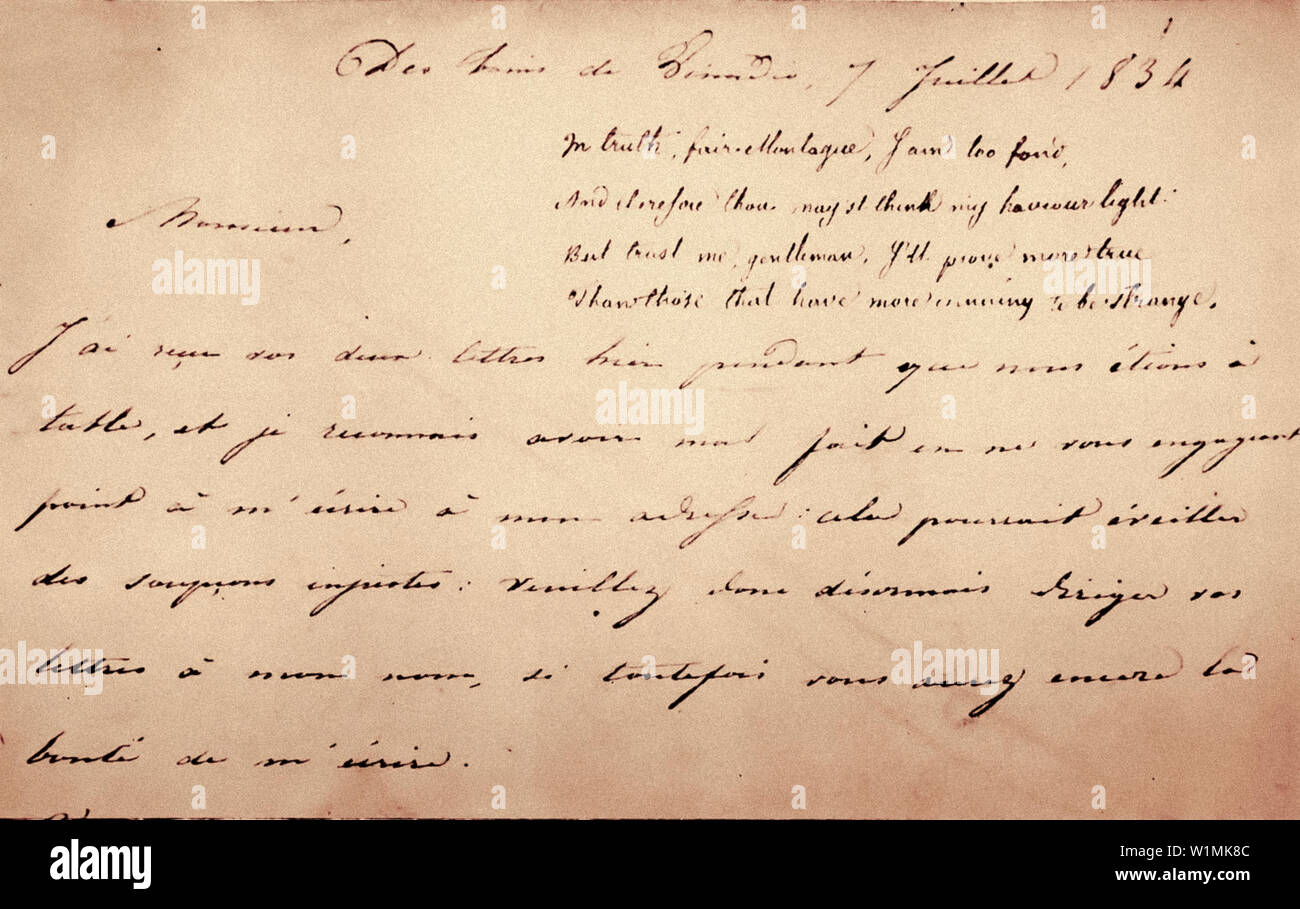 Des bains de Vinadio, 7 Juillet 1834
In truth, fair Montague, I am too fond,
And therefore thou may'st think my haviour light:
But trust me, gentleman, I'll prove more true
Than those that have more cunning to be strange.
Monsieur,
J'ai reçu vos deux lettres hier pendant que nous étions à
table, et je reconnais avoir mal fait en ne vous engageant
point à m'écrire à mon adresse : cela pourrait éveiller
des soupçons injustes : veuillez donc désormais diriger vos
lettres à mon nom, si toutefois vous aurez encore la
bonté de m'écrire.
alamy
Image ID: W1MK8C
www.alamy.com